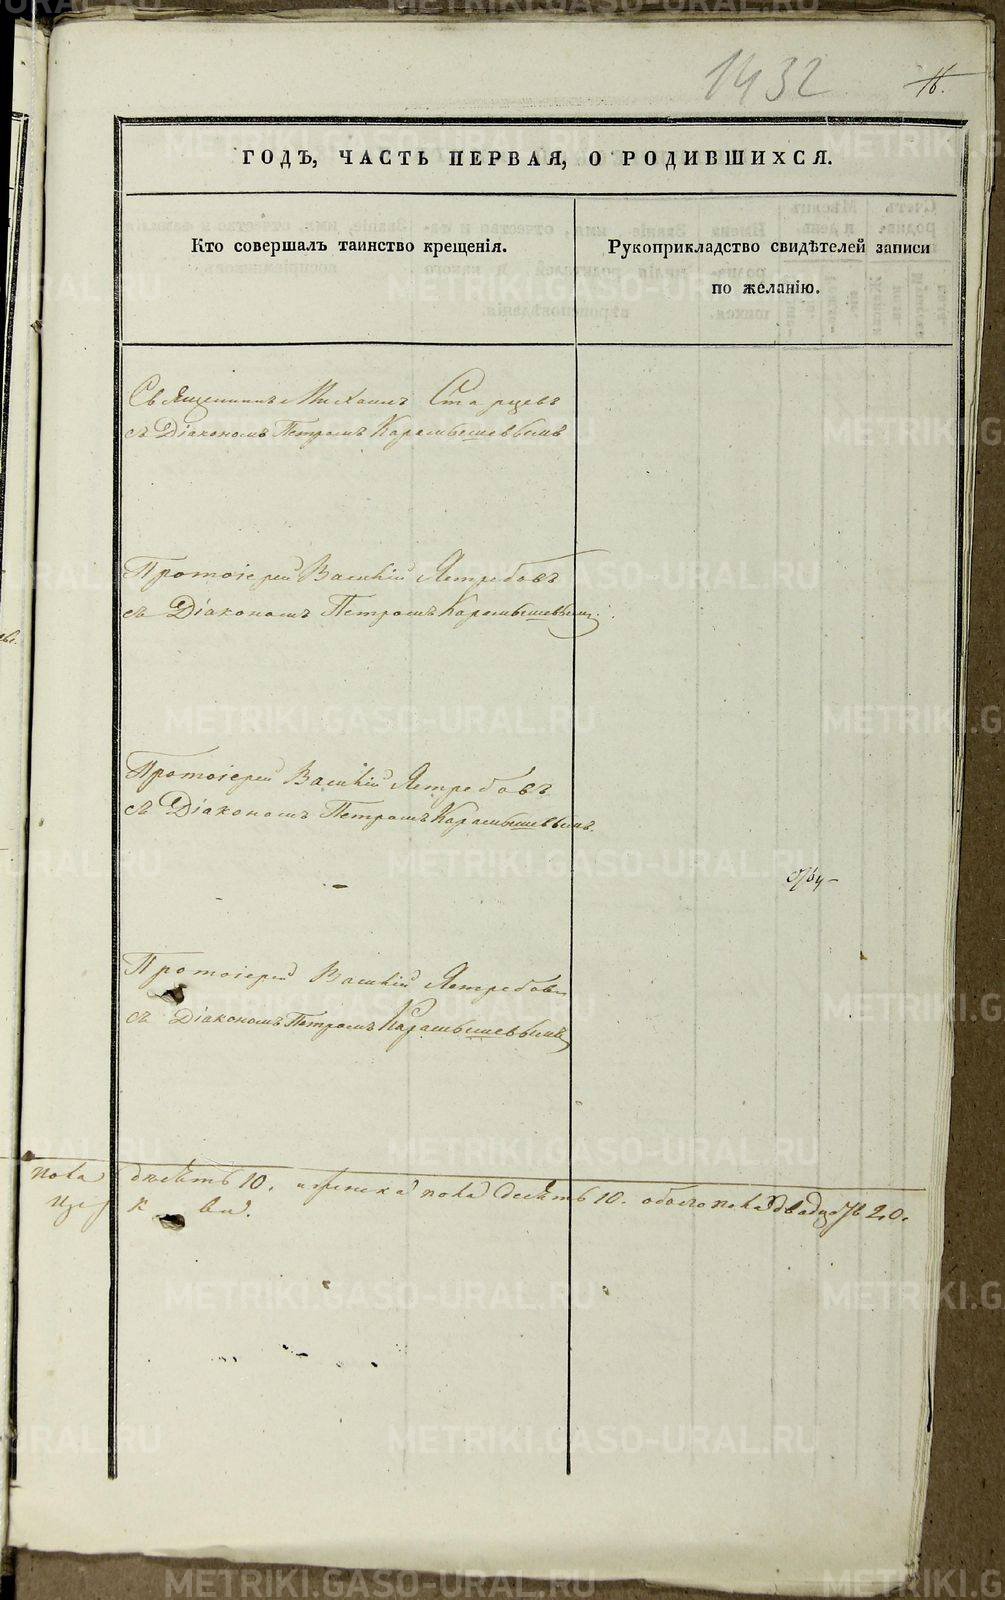 1432
16.
ГОДЪ, ЧАСТЬ ПЕРВАЯ, О РОДИВШИХСЯ.
Кто совершалъ таинство крещенія.
Рукоприкладство свидѣтелей записи
по желанію.
Священникъ Михаилъ Старцевъ
съ Діакономъ Петромъ Карамышевымъ
Протоіерей Василій Ястребовъ
съ Діакономъ Петромъ Карамышевымъ.
Протоіерей Василій Ястребовъ
съ Діакономъ Петромъ Карамышевымъ.
Протоіерей Василій Ястребовъ
съ Діакономъ Петромъ Карамышевымъ
пола десять 10. женска пола десять 10. обоего пола двадцать 20.
METRIKI.GASO-URAL.RU